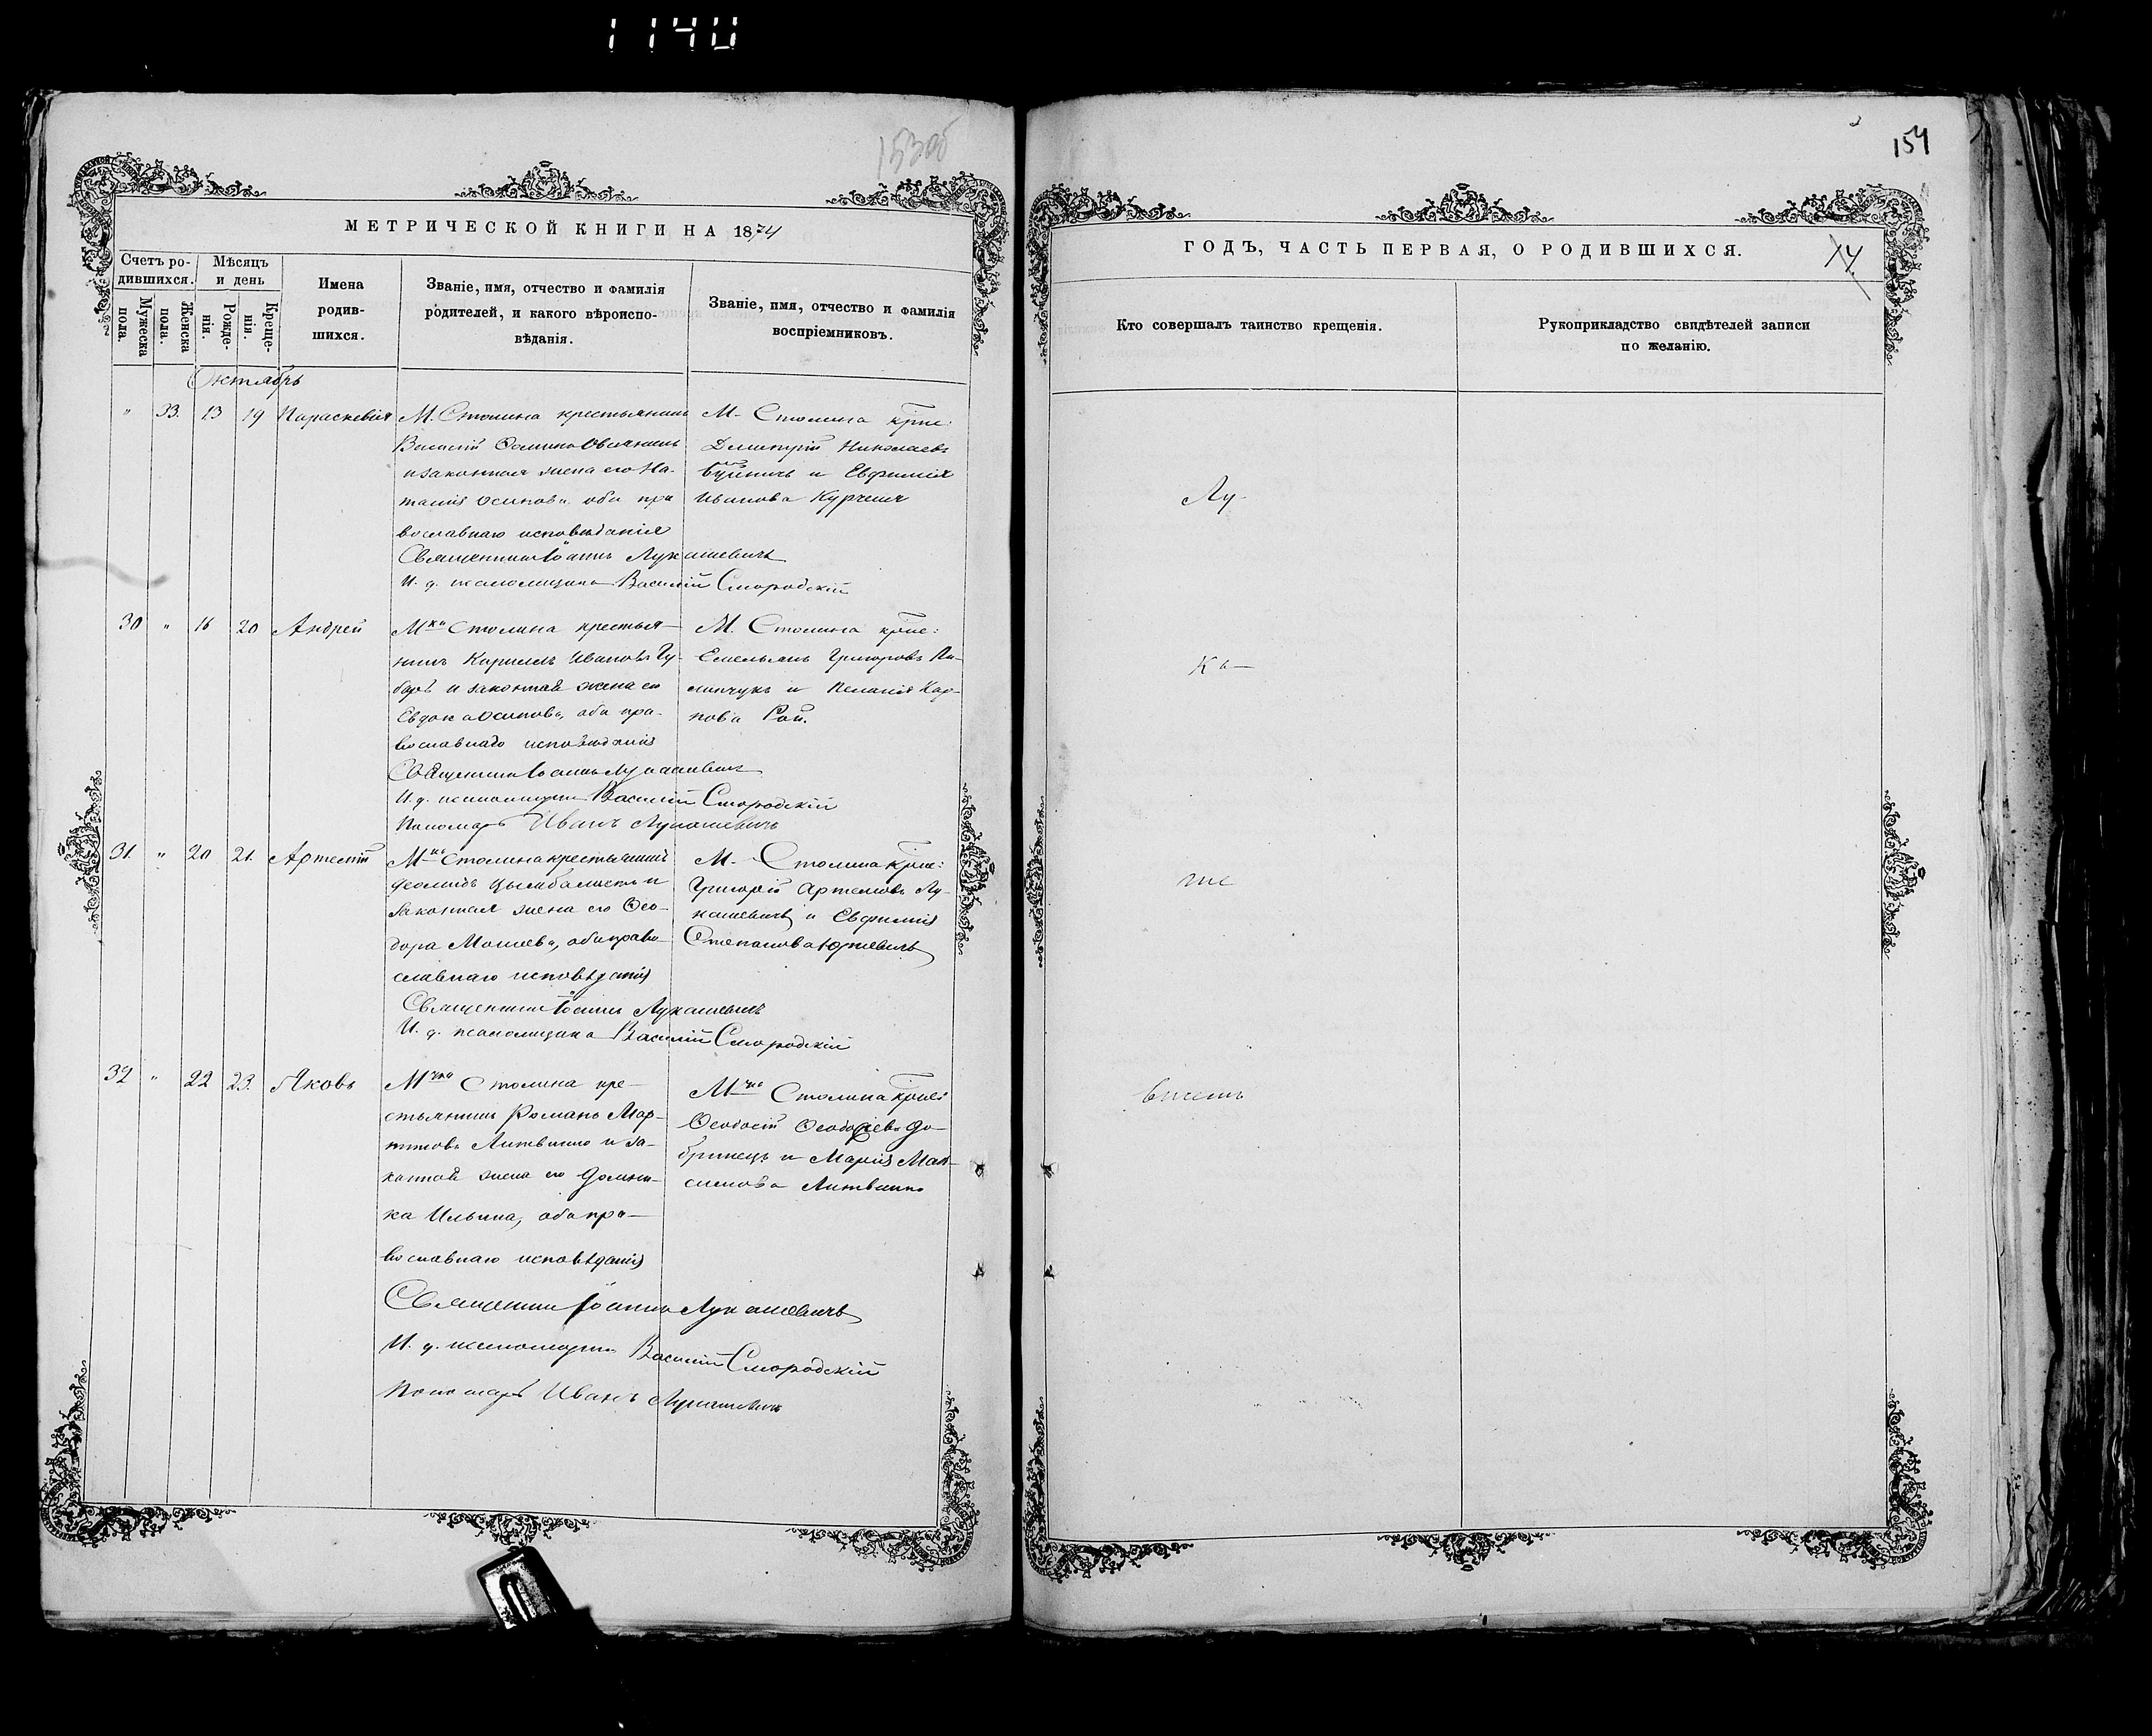 1140
153об
МЕТРИЧЕСКОЙ КНИГИ НА 1874
Счетъ ро-
дившихся.
Мужеска
пола.
Женска
пола.
Мѣсяцъ
и день
Рожде-
нія.
Креще-
нія.
Имена
родив-
шихся.
Званіе, имя, отчество и фамилія
родителей, и какого вѣроиспо-
вѣданія.
Званіе, имя, отчество и фамилія
воспріемниковъ.
Октябрь
" 33. 13 19 Параскевія
М. Столина крестьянинъ
Василій
и законная жена его На-
талія Осипова, оба пра
вославнаго исповѣданія
Священникъ Іоаннъ Лукашевичъ
И. д. псаломщика Василій Смородскій
М. Столина крне:
Димитрій Николаевъ
и Евфимія
Иванова Курчичъ
30 " 16 20 Андрей
Мка Столина крестья-
нинъ Кириллъ Ивановъ Гу-
барь и законная жена его
Евдокія Осипова, оба пра-
вославнаго исповѣданія
Священникъ Іоаннъ Лукашевичъ
И. д. псаломщика Василій Смородскій
Пономарь Иванъ Лукашевичъ
М. Столина крне:
Емельянъ Григоровъ Пи-
липчукъ и Пелагія Кар-
пова Рой.
31. " 20 21. Артемій
Мка Столина крестьянинъ
Цымбалистъ и
законная жена его Ѳео-
дора Моисеева, оба право-
славнаго исповѣданія
Священникъ Іоаннъ Лукашевичъ
И. д. псаломщика Василій Смородскій
М. Столина крне:
Григорій Артемовъ Лу-
кашевичъ и Евфимія
Степанова Юркевичъ
32 " 22 23. Яковъ
Мчка Столина кре-
стьянинъ Романъ Мар-
тиновъ Литвинко и за-
конная жена его Домни-
ка Ильина, оба пра-
вославнаго исповѣданія
Священникъ Іоаннъ Лукашевичъ
И. д. псаломщика Василій Смородскій
Пономарь Иванъ Лукашевичъ
Мчка Столина крне:
Ѳеодосій Ѳеодосіевъ До-
бринецъ и Марія Мак-
симова Литвинко
154
ГОДЪ, ЧАСТЬ ПЕРВАЯ, О РОДИВШИХСЯ.
14
Кто совершалъ таинство крещенія.
Рукоприкладство свидѣтелей записи
по желанію.
Лу-
ка-
ше
вичъ